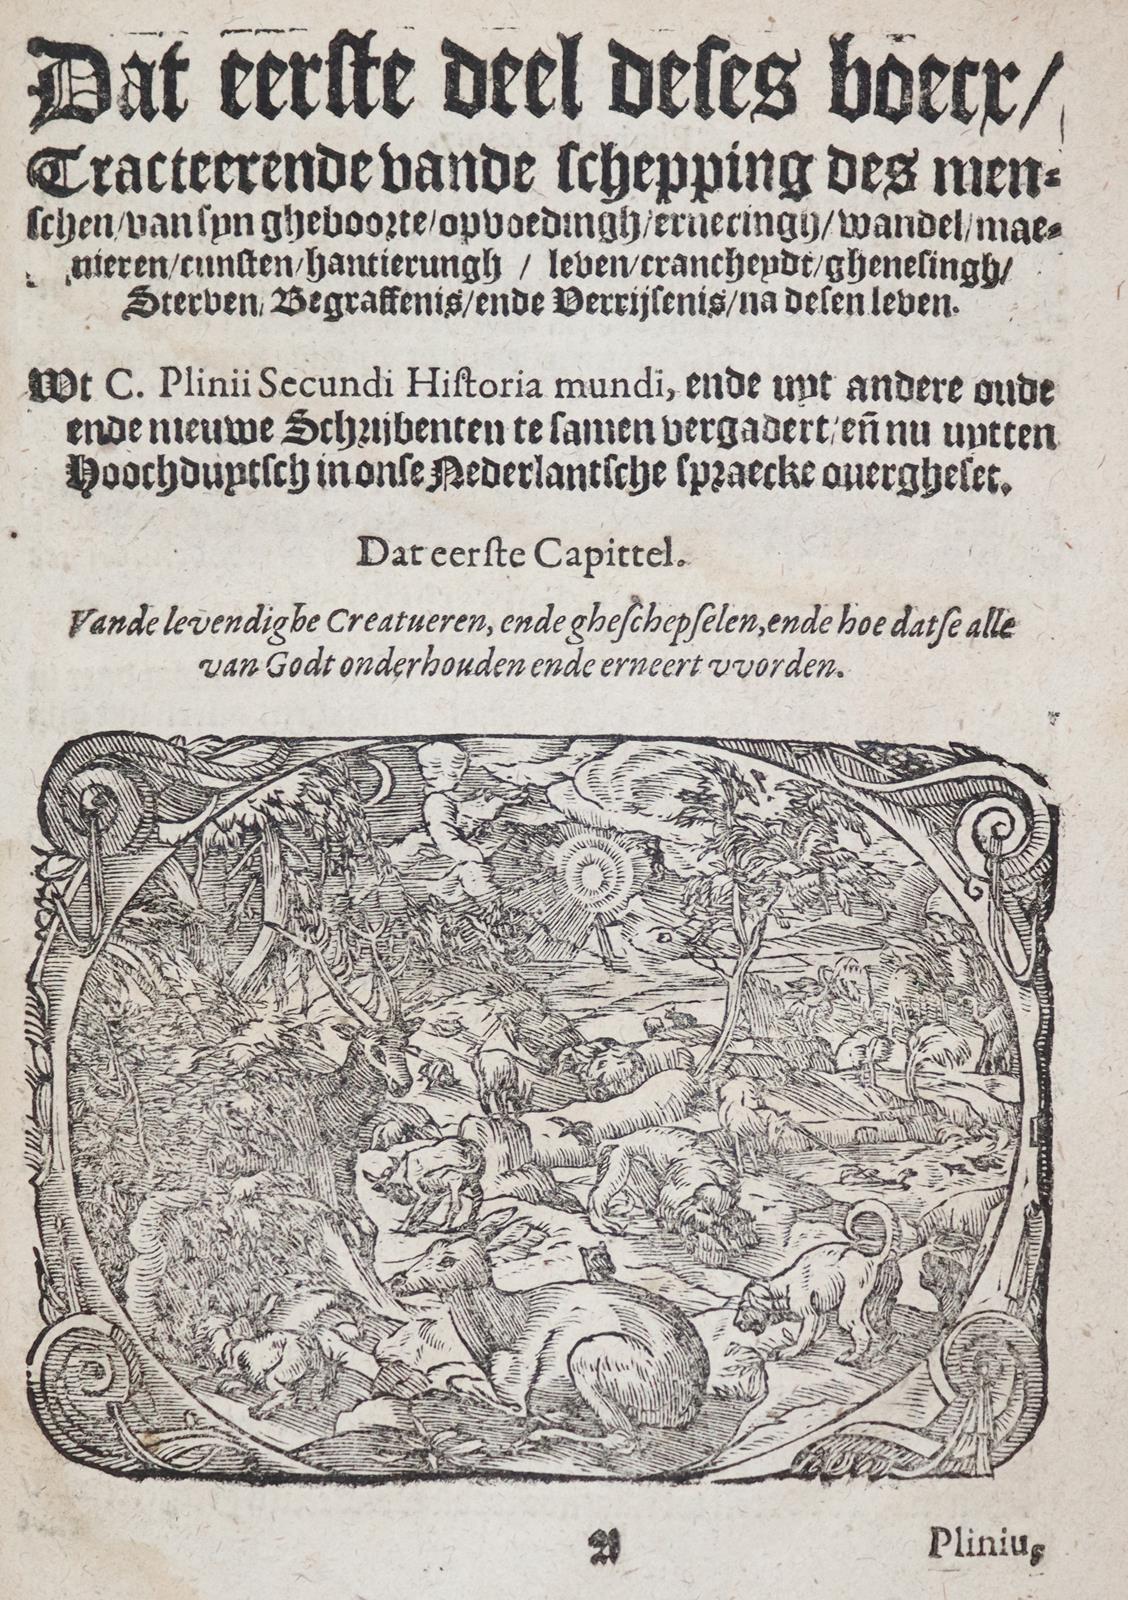 Dat eerſte deel deſes boecx/
Tracteerende vande ſchepping des men⸗
ſchen/van ſyn gheboorte/opvoedingh/erneeringh/wandel/mae⸗
nieren/cunſten/hantierungh / leven/cranckheydt/gheneſingh/
Sterven/Begraffenis/ende Verrijſenis/na deſen leven.
Wt C. Plinii Secundi Hiſtoria mundi, ende uyt andere oude
ende nieuwe Schrijbenten te ſamen vergadert/en̄ nu uytten
Hoochduytſch in onſe Nederlantſche ſpraecke overgheſet.
Dat eerſte Capittel.
Vande levendighe Creatueren, ende gheſchepſelen, ende hoe datſe alle
van Godt onderhouden ende erneert vvorden.
A Plinius